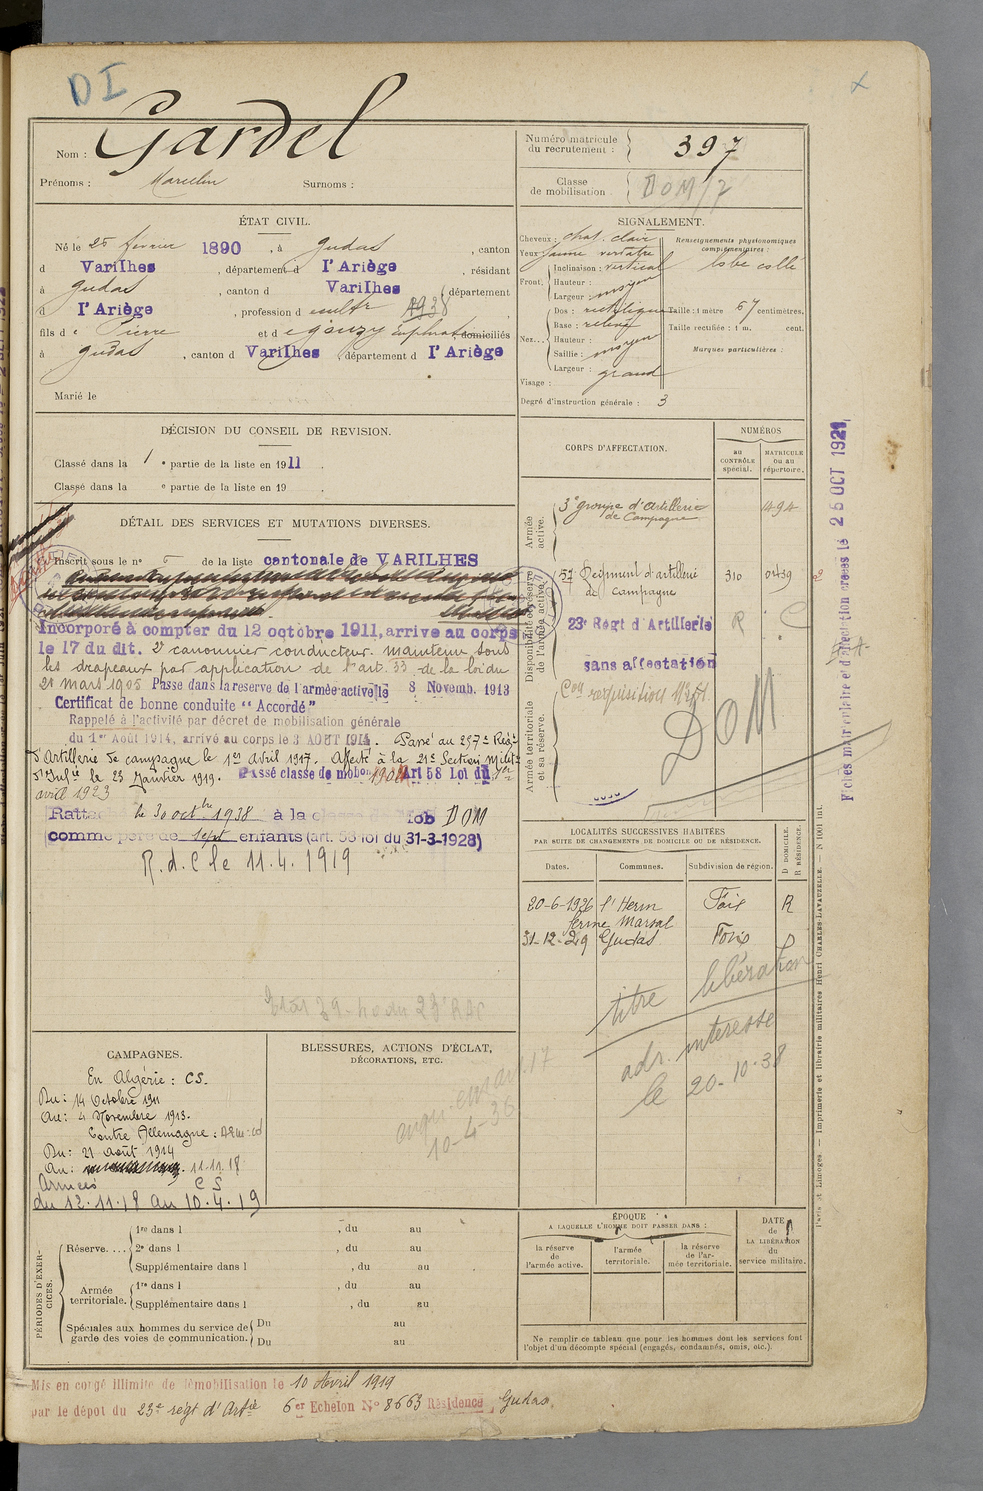 D I
Nom : Gardel
Prénoms : Marcelin Surnoms :
Numéro matricule
du recrutement : 397
Classe
de mobilisation DOM/7
ÉTAT CIVIL.
Né le 25 février 1890, à Gudas, canton
d Varilhes, département d l'Ariège, résidant
à Gudas, canton d Varilhes, département
d l'Ariège, profession d cultr 1938
fils de Pierre et de domiciliés
à Gudas, canton d Varilhes, département d l'Ariège
Marié le
SIGNALEMENT.
Cheveux : chat. clair
Yeux : jaune verdâtre
Front. Inclinaison : vertical
Hauteur :
Largeur : moyen
Nez... Dos : rectiligne
Base : relevé
Hauteur :
Saillie : moyen
Largeur :
Visage : grand
Degré d'instruction générale : 3
Renseignements physionomiques
complémentaires :
lobe collé
Taille : 1 mètre 67 centimètres.
Taille rectifiée : 1 m. cent.
Marques particulières :
DÉCISION DU CONSEIL DE REVISION.
Classé dans la 1e partie de la liste en 1911.
Classé dans la e partie de la liste en 19
DÉTAIL DES SERVICES ET MUTATIONS DIVERSES.
Inscrit sous le n° 5 de la liste cantonale de VARILHES
Incorporé à compter du 12 octobre 1911, arrivé au corps
le 17 du dit. 2e canonnier conducteur. maintenu sous
les drapeaux par application de l'art. 33 de la loi du
21 mars 1905 Passé dans la réserve de l'armée active le 8 Novemb. 1913
Certificat de bonne conduite "Accordé"
Rappelé à l'activité par décret de mobilisation générale
du 1er Août 1914, arrivé au corps le 3 AOUT 1914. Passé au 257e Régt
d'Artillerie de campagne le 1er avril 1917. Affecté à la 21e Section milit
d'Infie le 23 Janvier 1919. Passé classe de mobon Art 58 Loi du 1er
avril 1923
Ratta le 30 octbre 1938 à la classe de mob DOM
comme père de sept enfants (art. 58 loi du 31-3-1928)
R.d.C le 11.4.1919
CORPS D'AFFECTATION.
NUMÉROS
au
CONTRÔLE
spécial.
MATRICULE
ou au
répertoire.
Armée
active.
3e groupe d'Artillerie
de Campagne 1494
Disponibilité et réserve
de l'armée active.
57 Régiment d'artillerie
de Campagne 310 0439
23e Régt d'Artillerie R
sans affectation
Armée territoriale
et sa réserve.
Con réquisition
DOM
Fiches matriculaire et d'affectation créées le 25 OCT 1921
LOCALITÉS SUCCESSIVES HABITÉES
PAR SUITE DE CHANGEMENTS DE DOMICILE OU DE RÉSIDENCE.
D DOMICILE.
R RÉSIDENCE.
Dates. Communes. Subdivision de région.
20-6-1926 l'Herm Foix R
ferme Marsal
31-12-29 Gudas Foix D
titre libération
adr. intéressé
le 20-10-38
CAMPAGNES.
En Algérie : CS.
Du : 14 Octobre 1911
Au : 4 Novembre 1913.
Contre Allemagne :
Du : 21 août 1914
Au : 11.11.18
Armées CS
du 12.11.18 au 10.4.19
BLESSURES, ACTIONS D'ÉCLAT,
DÉCORATIONS, ETC.
10-4-36
PÉRIODES D'EXERCICES.
Réserve....
1re dans l , du au
2e dans l , du au
Supplémentaire dans l , du au
Armée
territoriale.
1re dans l , du au
Supplémentaire dans l , du au
Spéciales aux hommes du service de
garde des voies de communication.
Du au
Du au
ÉPOQUE
A LAQUELLE L'HOMME DOIT PASSER DANS :
la réserve
de
l'armée active.
l'armée
territoriale.
la réserve
de l'armée territoriale.
DATE
de
LA LIBÉRATION
du
service militaire.
Ne remplir ce tableau que pour les hommes dont les services font
l'objet d'un décompte spécial (engagés, condamnés, omis, etc.).
Paris et Limoges. — Imprimerie et librairie militaires Henri CHARLES-LAVAUZELLE. — N° 1001 bis.
Mis en congé illimité de démobilisation le 10 Avril 1919
par le dépôt du 23e régt d'Artie 6er Echelon N° 8663 Résidence Gudas.